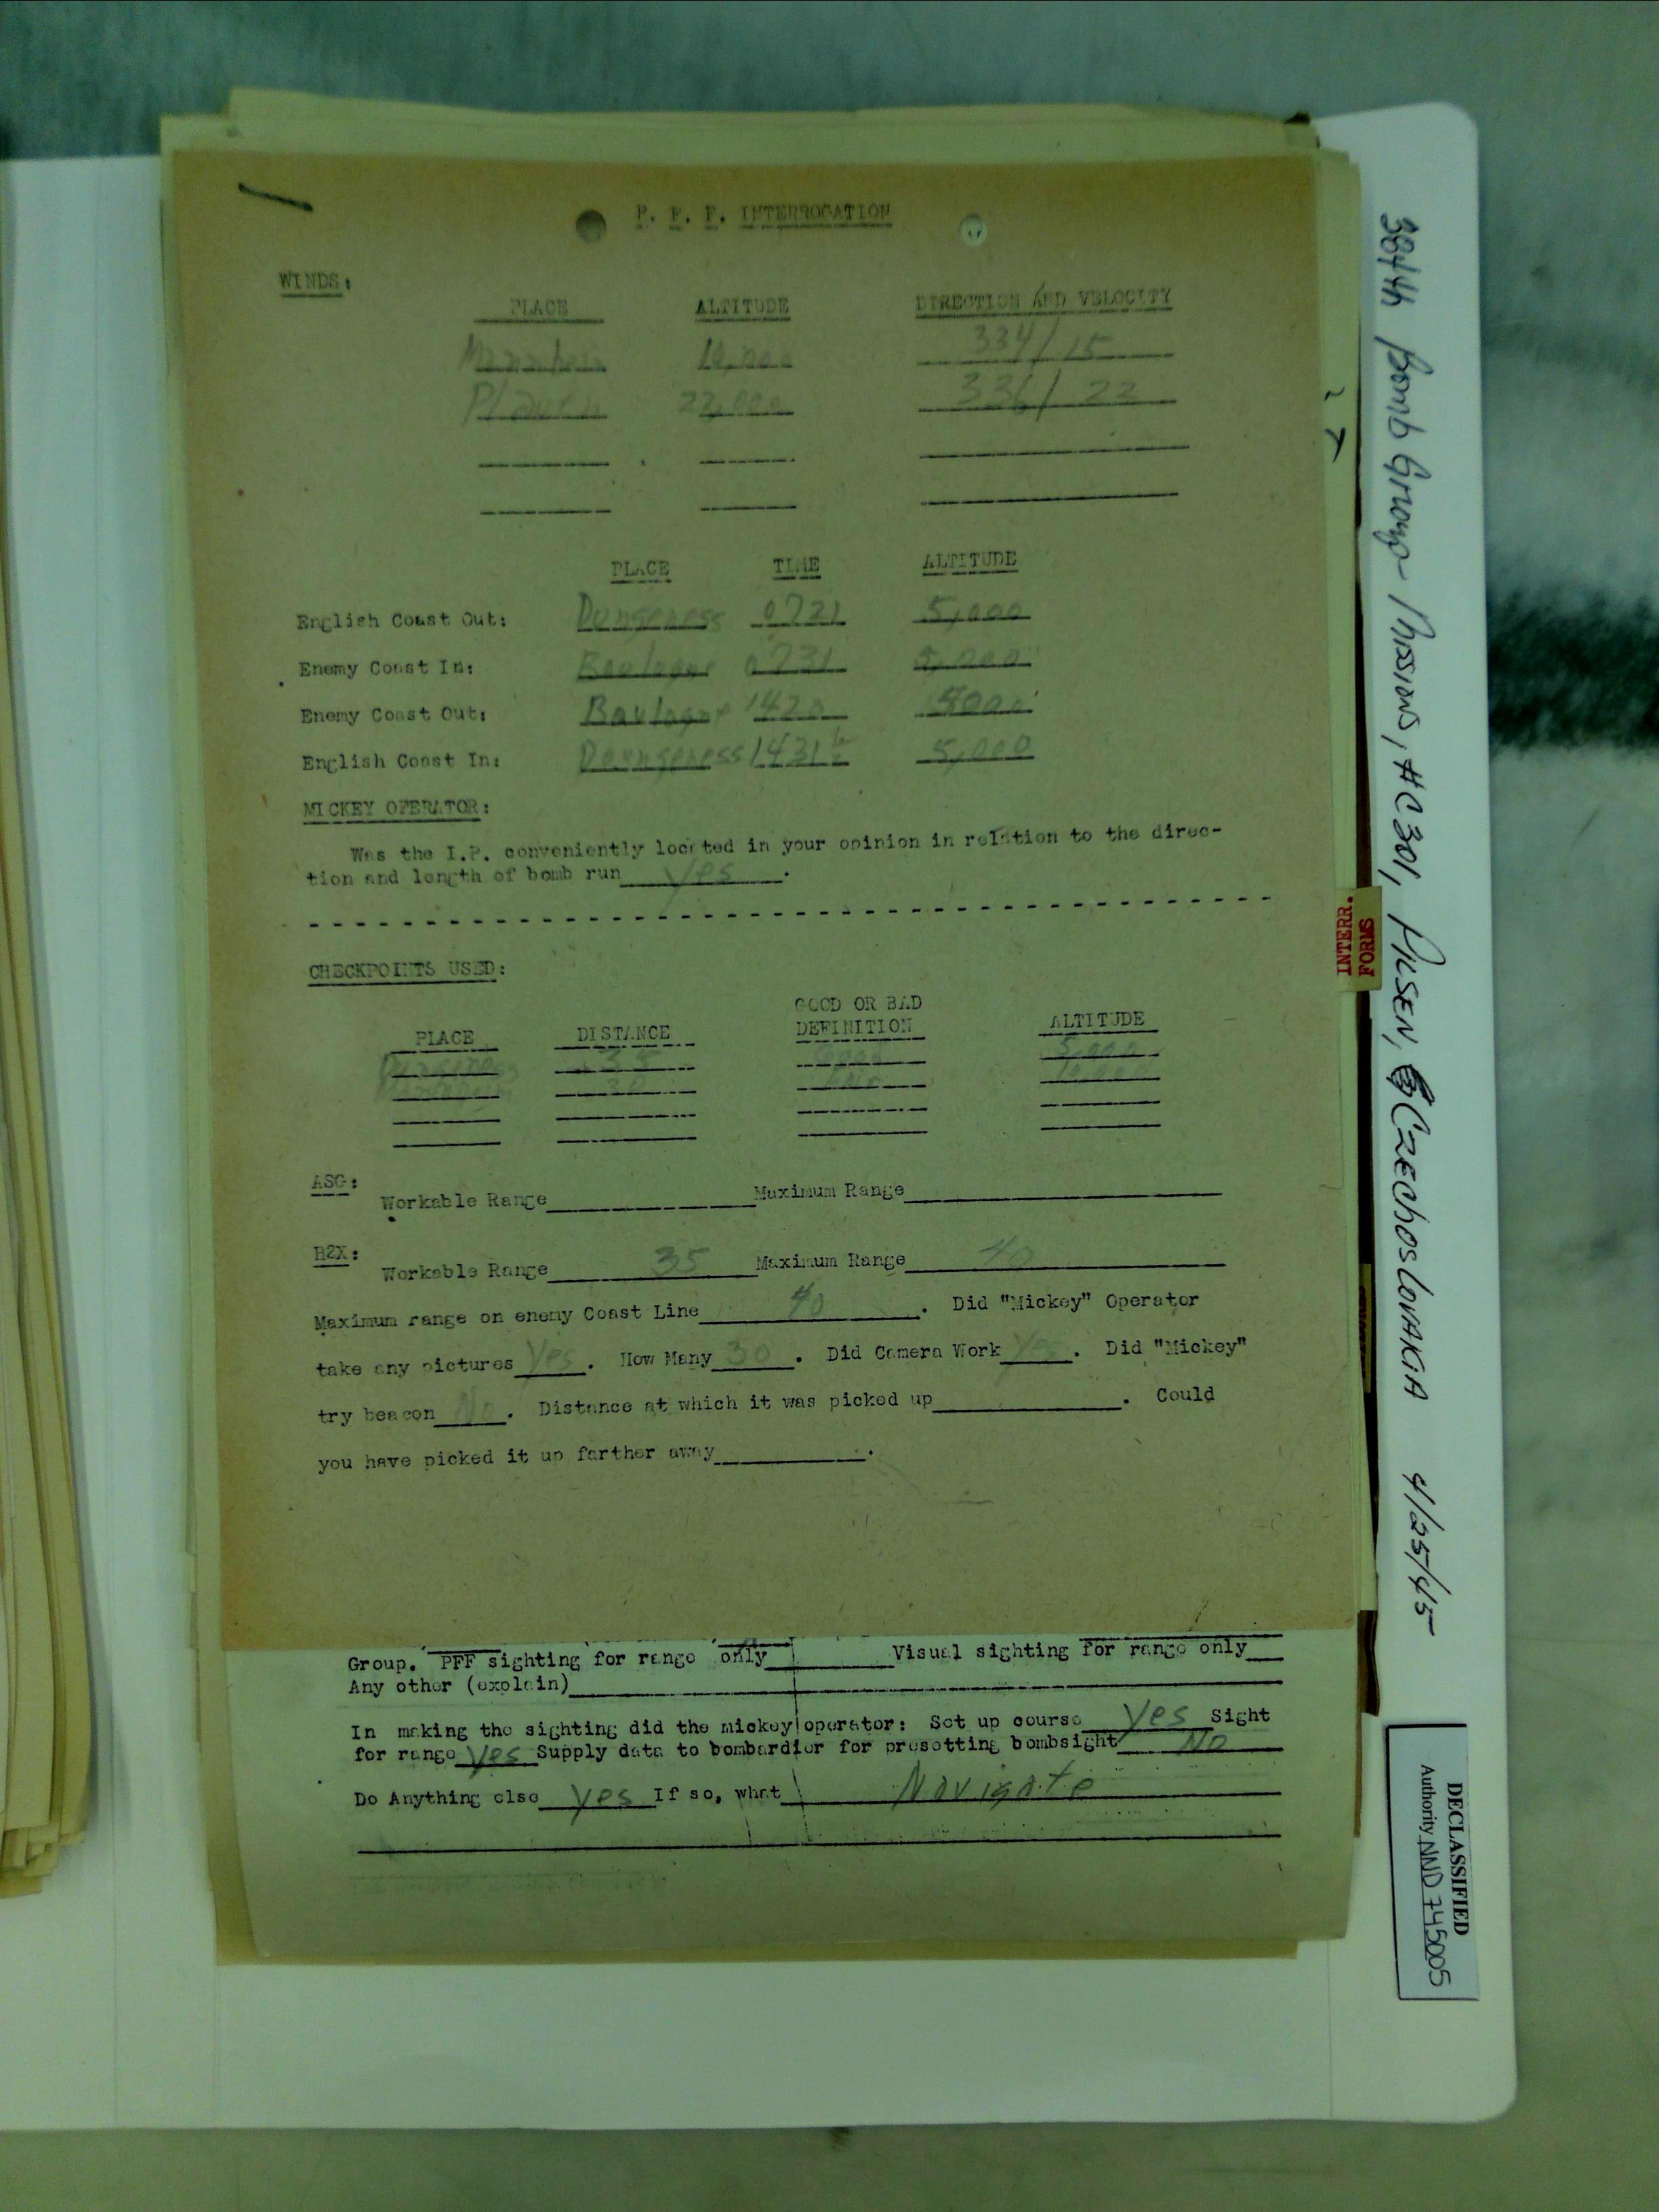 P. F. F. INTERROGATION
WINDS:
PLACE ALTITUDE DIRECTION AND VELOCITY
Mannheim 334/15
Plauen 22,000 336/22
PLACE TIME ALTITUDE
English Coast Out: Dungeness 0721 5,000
Enemy Coast In: Boulogne 0731 5,000
Enemy Coast Out: Boulogne 1420 5000
English Coast In: 1431½ 5,000
MICKEY OPERATOR:
Was the I.P. conveniently located in your opinion in relation to the direc-
tion and length of bomb run Yes.
CHECKPOINTS USED:
GOOD OR BAD
PLACE DISTANCE DEFINITION ALTITUDE
35 5,000
30
ASG:
Workable Range Maximum Range
H2X:
Workable Range 35 Maximum Range 40
Maximum range on enemy Coast Line 40. Did "Mickey" Operator
take any pictures Yes. How Many 30. Did Camera Work Yes. Did "Mickey"
try beacon No. Distance at which it was picked up. Could
you have picked it up farther away.
Group. PFF sighting for range only Visual sighting for range only
Any other (explain)
In making the sighting did the mickey operator: Set up course Yes Sight
for range Yes Supply data to bombardier for presetting bombsight No
Do Anything else Yes If so, what Navigate
INTERR.
FORMS
384th Bomb Group Missions, #C301, Pilsen, Czechoslovakia 4/25/45
DECLASSIFIED
Authority NND 745005